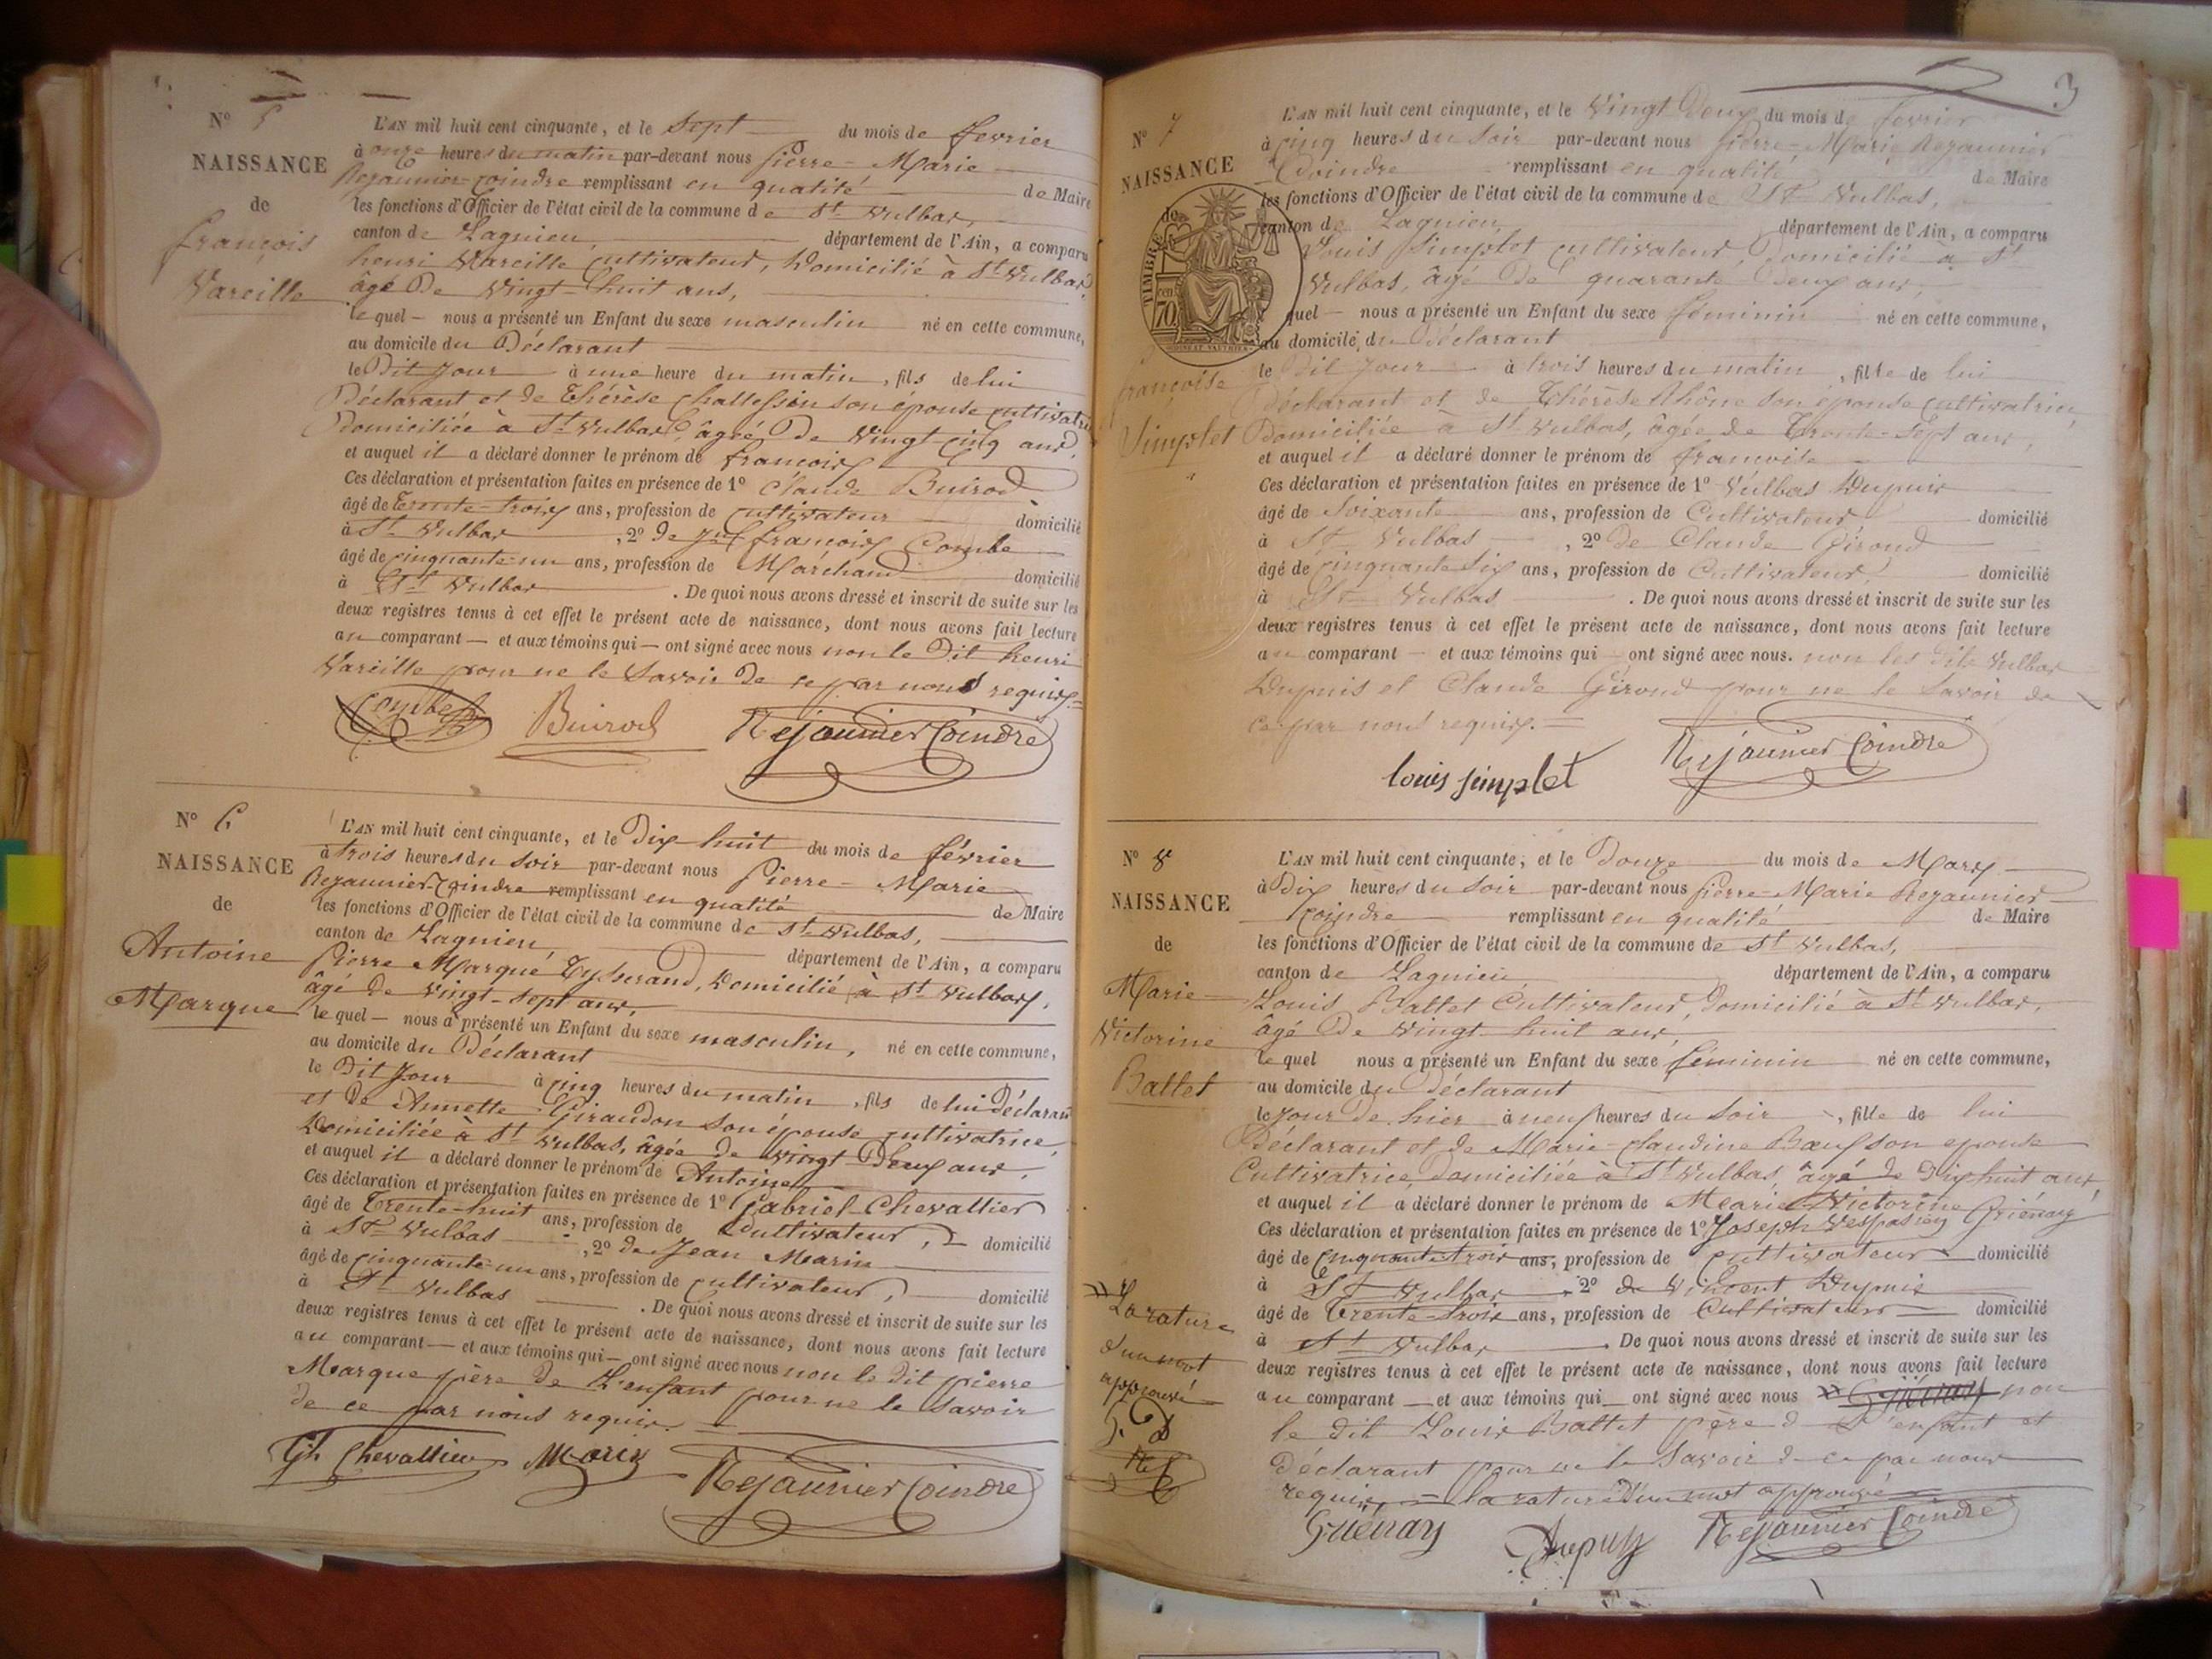 N° 5
NAISSANCE
de
françois
Vareille
L'AN mil huit cent cinquante, et le Sept du mois de fevrier
à onze heures du matin par-devant nous pierre-Marie
Rejaunier-Coindre remplissant en qualité de Maire
les fonctions d'Officier de l'état civil de la commune de St Vulbas,
canton de Lagnieu, département de l'Ain, a comparu
henri Vareille Cultivateur, Domicilié à St Vulbas,
âgé De Vingt-huit ans,
lequel nous a présenté un Enfant du sexe masculin né en cette commune,
au domicile du Déclarant
le Dit Jour à une heure du matin, fils de lui
Déclarant et de Thérèse son épouse cultivatrice
Domiciliée à St Vulbas, âgée De Vingt cinq ans,
et auquel il a déclaré donner le prénom de françois
Ces déclaration et présentation faites en présence de 1° Claude Buirod
âgé de Trente-trois ans, profession de cultivateur domicilié
à St Vulbas, 2° de françois Combe
âgé de cinquante-un ans, profession de Marchand domicilié
à St Vulbas. De quoi nous avons dressé et inscrit de suite sur les
deux registres tenus à cet effet le présent acte de naissance, dont nous avons fait lecture
au comparant et aux témoins qui ont signé avec nous non le Dit henri
Vareille pour ne le Savoir de ce par nous requis.
Combe Buirod Rejaunier Coindre
N° 6
NAISSANCE
de
Antoine
Marque
L'AN mil huit cent cinquante, et le Dix huit du mois de février
à trois heures du Soir par-devant nous Pierre-Marie
Rejaunier-Coindre remplissant en qualité de Maire
les fonctions d'Officier de l'état civil de la commune de St Vulbas,
canton de Lagnieu, département de l'Ain, a comparu
Pierre Marque Tysserand, Domicilié à St Vulbas,
âgé De Vingt-Sept ans,
lequel nous a présenté un Enfant du sexe masculin, né en cette commune,
au domicile du Déclarant
le Dit Jour à cinq heures du matin, fils de lui Déclarant
et De Annette Giraudon Son épouse cultivatrice,
Domiciliée à St Vulbas, âgée de Vingt Deux ans,
et auquel il a déclaré donner le prénom de Antoine
Ces déclaration et présentation faites en présence de 1° Gabriel Chevallier
âgé de Trente-huit ans, profession de Cultivateur, domicilié
à St Vulbas, 2° de Jean Marin
âgé de cinquante-un ans, profession de cultivateur, domicilié
à St Vulbas. De quoi nous avons dressé et inscrit de suite sur les
deux registres tenus à cet effet le présent acte de naissance, dont nous avons fait lecture
au comparant et aux témoins qui ont signé avec nous non le Dit pierre
Marque père De L'enfant pour ne le Savoir
de ce par nous requis.
Chevallier Marin Rejaunier Coindre
3
N° 7
NAISSANCE
de
TIMBRE
70
françoise
Simplet
L'AN mil huit cent cinquante, et le Vingt Deux du mois de fevrier
à cinq heures du Soir par-devant nous pierre-Marie Rejaunier
Coindre remplissant en qualité de Maire
les fonctions d'Officier de l'état civil de la commune de St Vulbas,
canton de Lagnieu, département de l'Ain, a comparu
Louis Simplet cultivateur, Domicilié à St
Vulbas, âgé De quarante Deux ans,
quel nous a présenté un Enfant du sexe féminin né en cette commune,
au domicile du Déclarant
le Dit Jour à trois heures du matin, fille de lui
Déclarant et de Thérèse Rhône Son épouse cultivatrice
Domiciliée à St Vulbas, âgée de Trente-Sept ans,
et auquel il a déclaré donner le prénom de françoise
Ces déclaration et présentation faites en présence de 1° Vulbas Dupuis
âgé de Soixante ans, profession de Cultivateur domicilié
à St Vulbas, 2° de Claude Giroud
âgé de cinquante Six ans, profession de Cultivateur, domicilié
à St Vulbas. De quoi nous avons dressé et inscrit de suite sur les
deux registres tenus à cet effet le présent acte de naissance, dont nous avons fait lecture
au comparant et aux témoins qui ont signé avec nous. non les dits Vulbas
Dupuis et Claude Giroud pour ne le Savoir de
ce par nous requis.
louis simplet Rejaunier Coindre
N° 8
NAISSANCE
de
Marie
Victorine
Ballet
L'AN mil huit cent cinquante, et le Douze du mois de Mars
à Dix heures du Soir par-devant nous pierre-Marie Rejaunier
Coindre remplissant en qualité de Maire
les fonctions d'Officier de l'état civil de la commune de St Vulbas,
canton de Lagnieu, département de l'Ain, a comparu
Louis Ballet Cultivateur, Domicilié à St Vulbas,
âgé De Vingt-huit ans,
lequel nous a présenté un Enfant du sexe féminin né en cette commune,
au domicile du Déclarant
le jour de hier à neuf heures du Soir, fille de lui
Déclarant et de Marie-Claudine Bœuf son épouse
Cultivatrice, domiciliée à St Vulbas, âgé de Dix huit ans,
et auquel il a déclaré donner le prénom de Marie Victorine
Ces déclaration et présentation faites en présence de 1° Joseph Vespasien Griénay
âgé de Cinquante trois ans, profession de cultivateur domicilié
à St Vulbas, 2° de Vincent Dupuis
âgé de Trente-trois ans, profession de Cultivateur domicilié
à St Vulbas. De quoi nous avons dressé et inscrit de suite sur les
deux registres tenus à cet effet le présent acte de naissance, dont nous avons fait lecture
au comparant et aux témoins qui ont signé avec nous Griénay non
le dit Louis Ballet père de L'enfant et
Déclarant pour ne le Savoir de ce par nous
requis, la rature d'un mot approuvé
La rature
d'un mot
approuvé
Griénay Dupuis Rejaunier Coindre